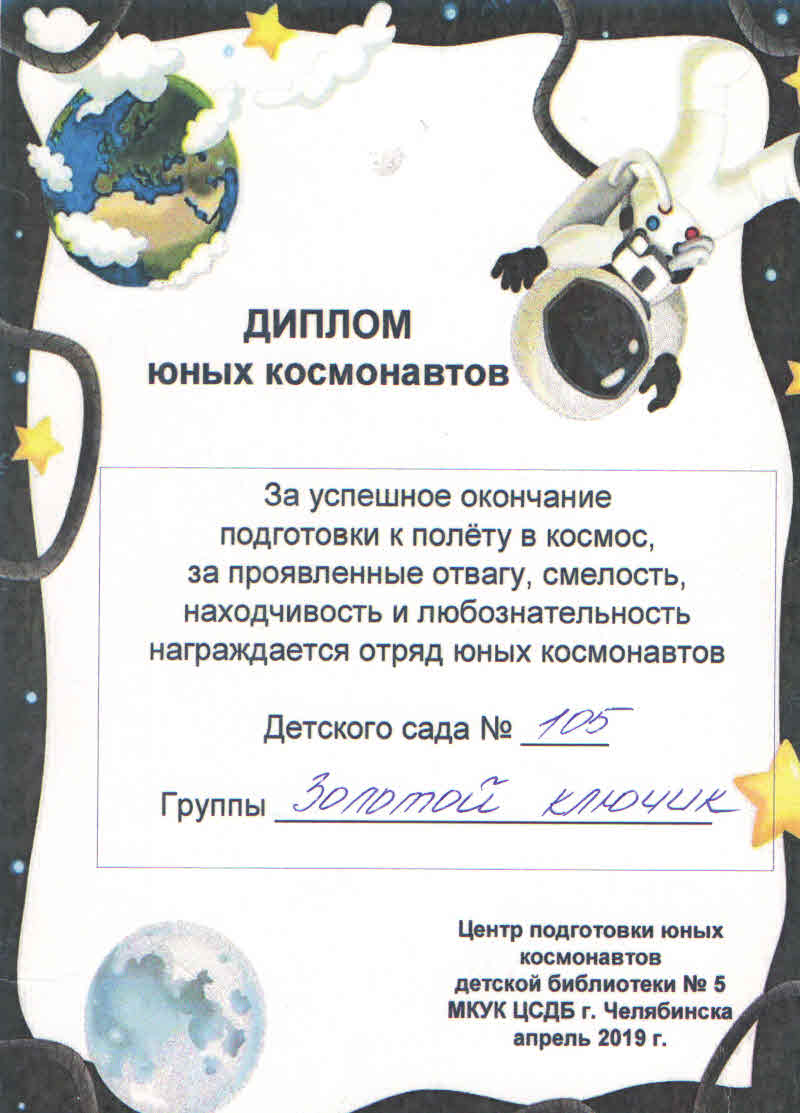 ДИПЛОМ
юных космонавтов
За успешное окончание
подготовки к полёту в космос,
за проявленные отвагу, смелость,
находчивость и любознательность
награждается отряд юных космонавтов
Детского сада № 105
Группы Золотой ключик
Центр подготовки юных
космонавтов
детской библиотеки № 5
МКУК ЦСДБ г. Челябинска
апрель 2019 г.